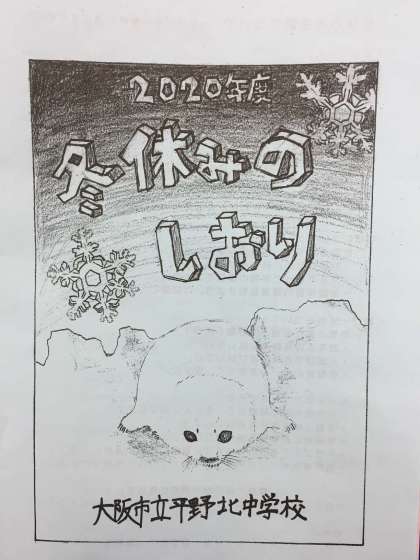 2020年度
冬休みの
しおり
大阪市立平野北中学校